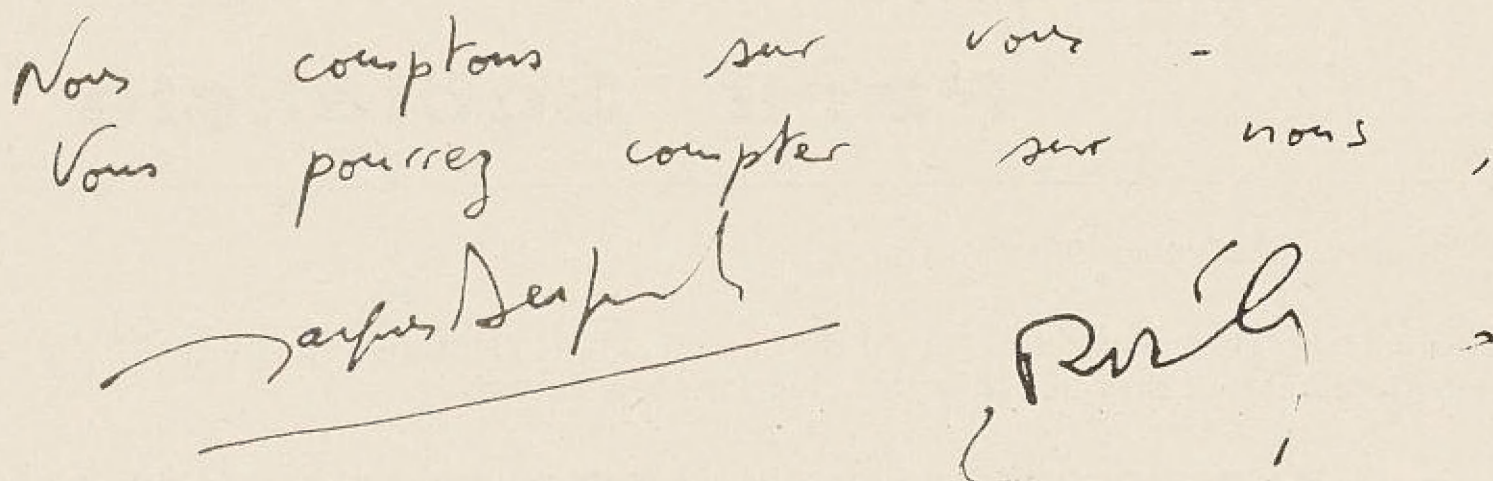 Nous comptons sur vous -
Vous pourrez compter sur nous,
Jacques